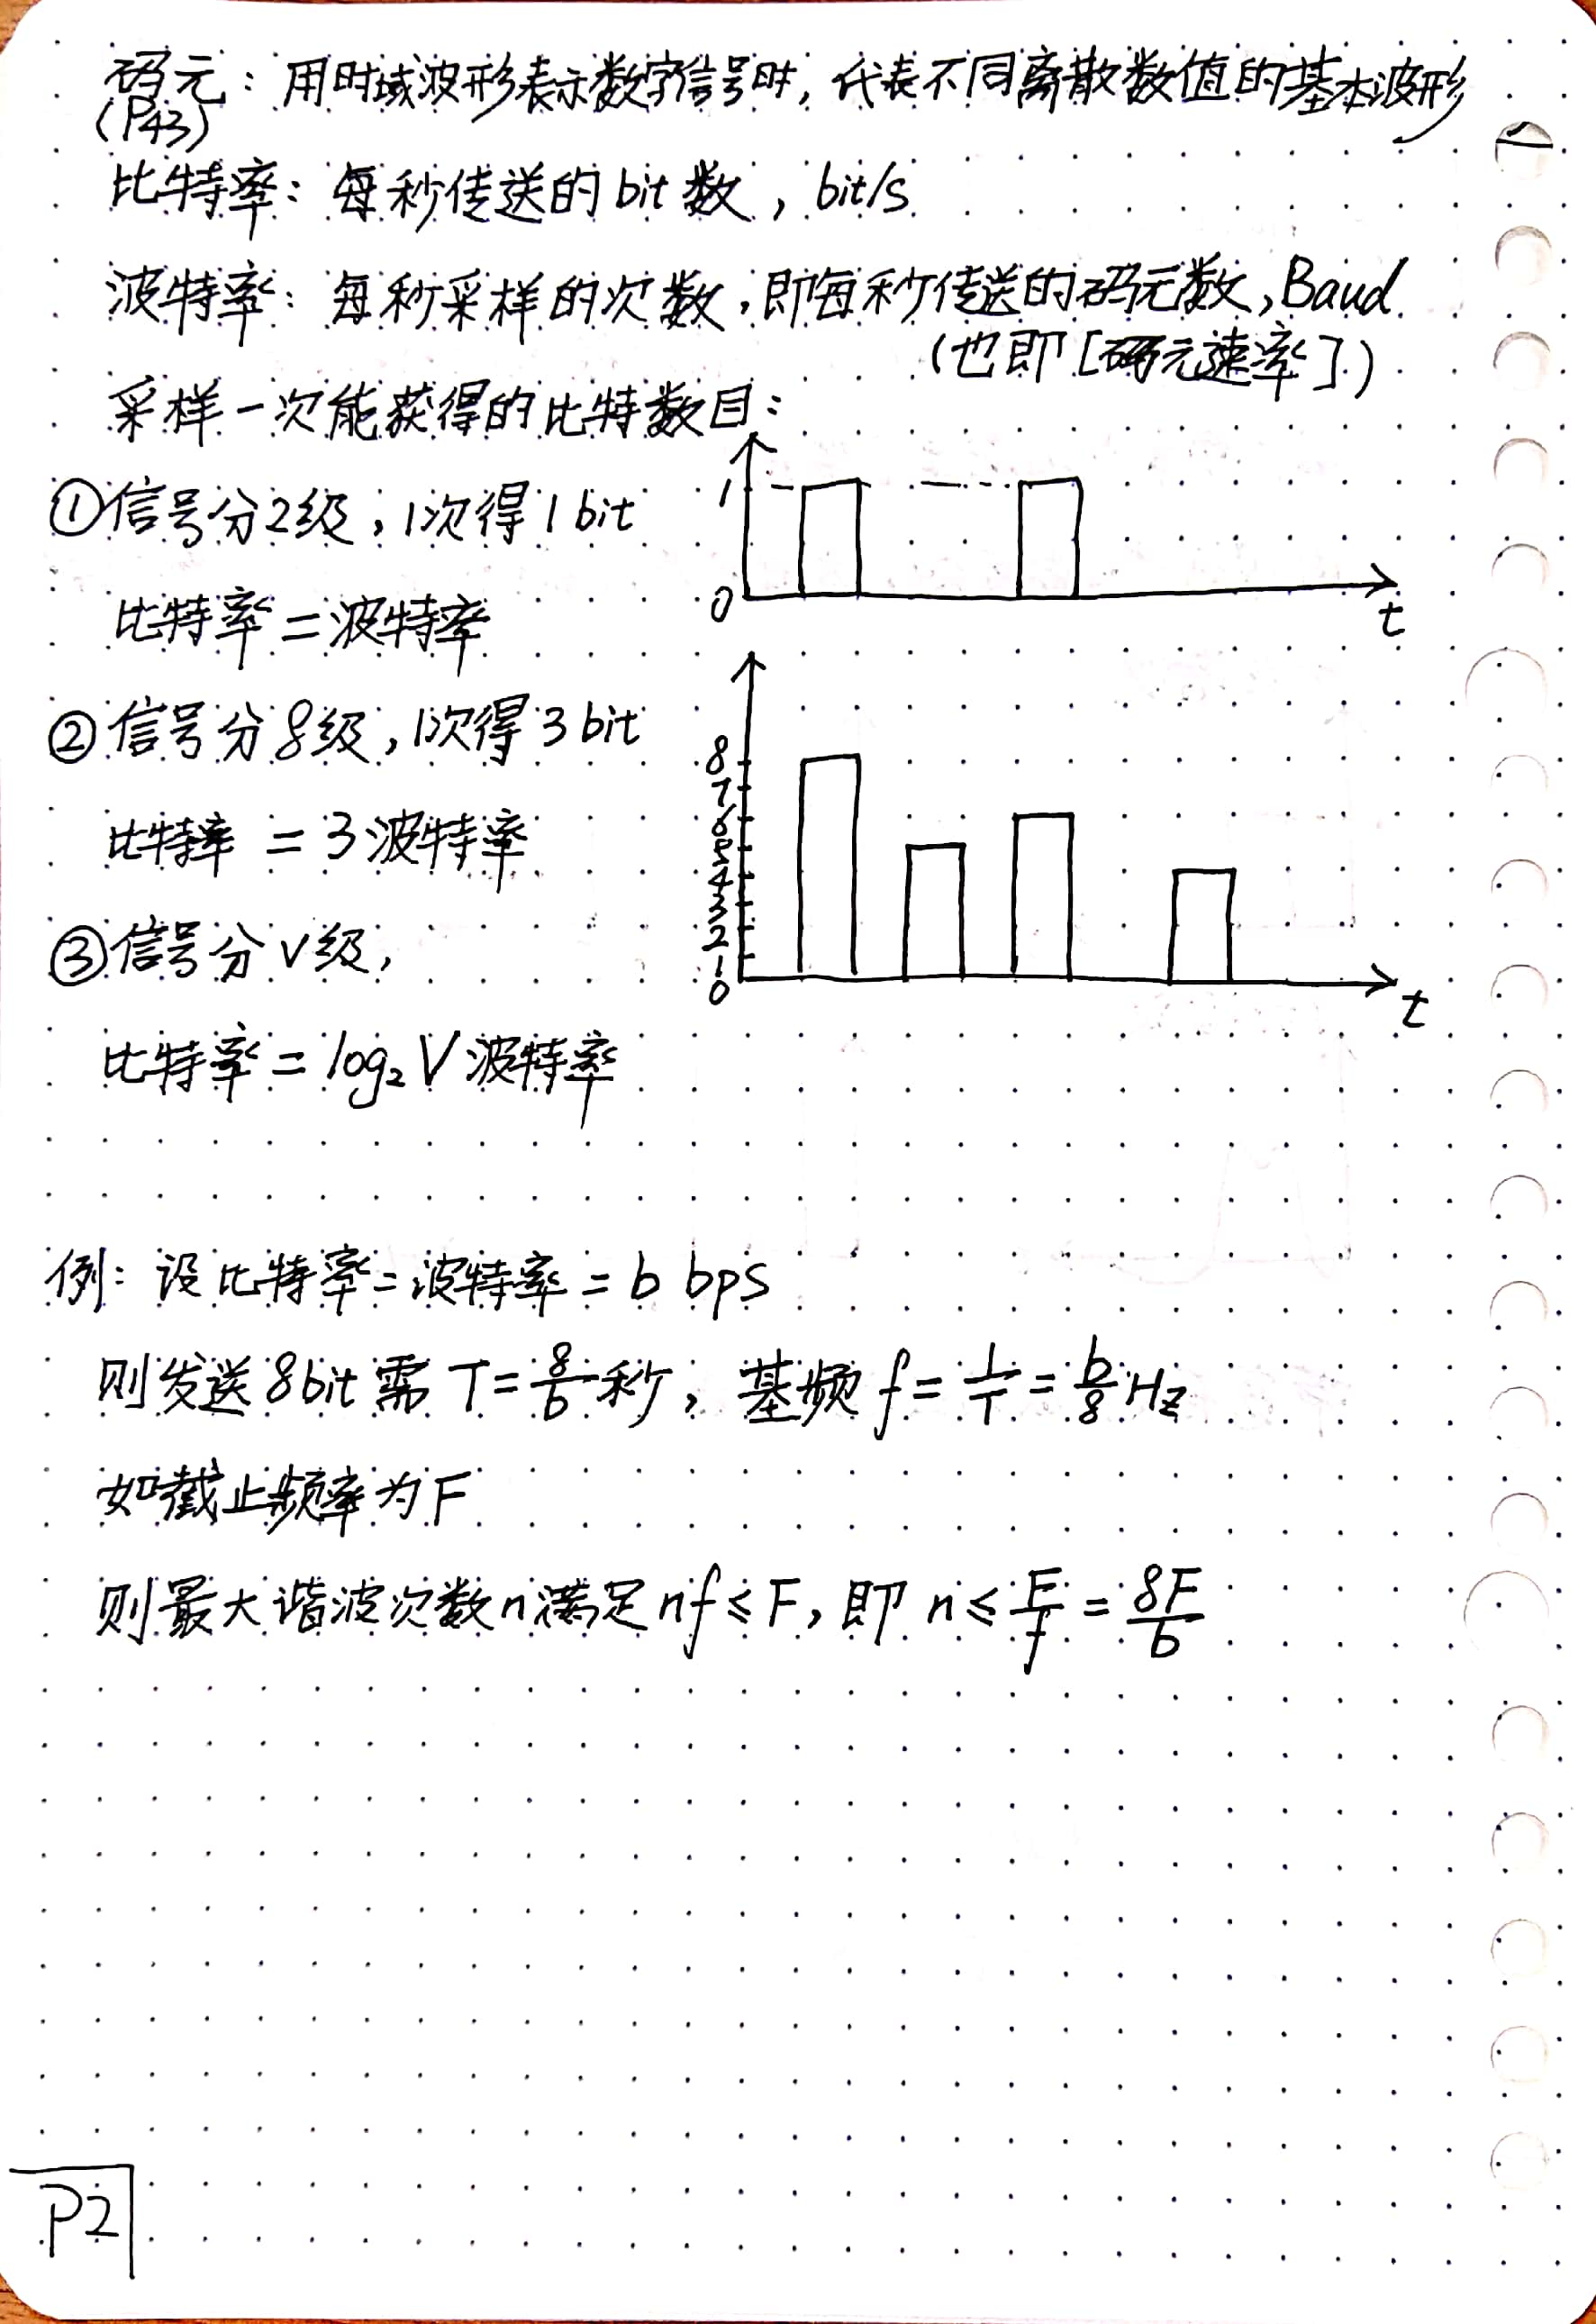 码元：用时域波形表示数字信号时，代表不同离散数值的基本波形
(P43)
比特率：每秒传送的bit数，bit/s
波特率：每秒采样的次数，即每秒传送的码元数，Baud
(也即[码元速率])
采样一次能获得的比特数目：
①信号分2级，1次得1bit
比特率=波特率
1
0
t
②信号分8级，1次得3bit
比特率 = 3波特率
8
7
6
5
4
3
2
1
0
t
③信号分V级，
比特率=log₂V波特率
例：设比特率=波特率=b bps
则发送8bit需T=8/b秒，基频f=1/T=b/8 Hz
如截止频率为F
则最大谐波次数n满足nf≤F，即n≤F/f=8F/b
P2